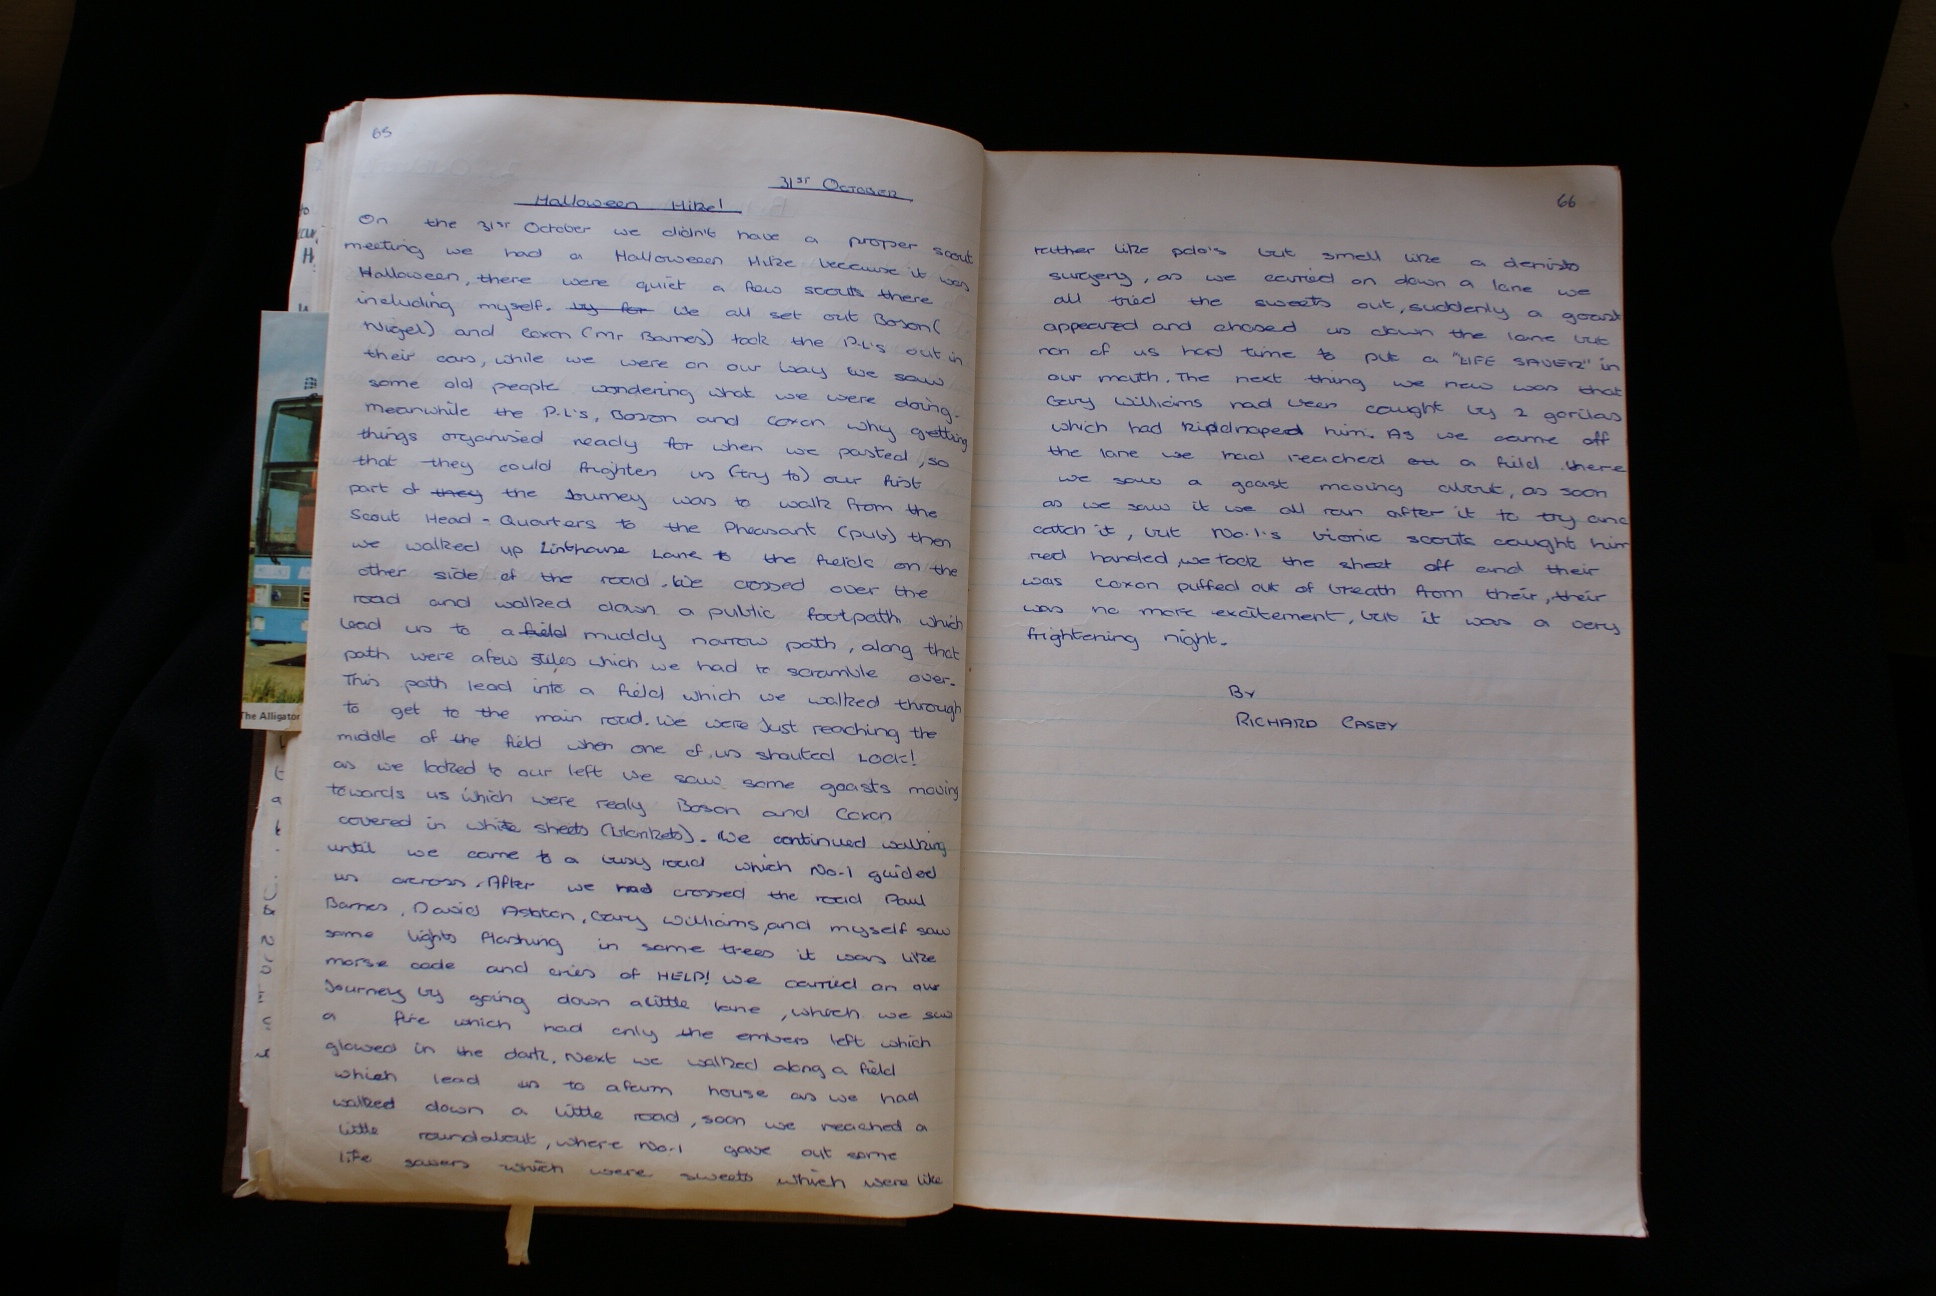 65
31st October
Halloween Hike!
On the 31st October we didn't have a proper scout
meeting we had a Halloween Hike because it was
Halloween, there were quiet a few scouts there
including myself. by for We all set out Boson(
Nigel) and Coxon (Mr Barnes) took the P.L's out in
their cars, while we were on our way we saw
some old people wondering what we were doing.
meanwhile the P.L's, Boson and Coxon why getting
things organised ready for when we pasted, so
that they could frighten us (try to) our first
part of they the Journey was to walk from the
Scout Head-Quarters to the Pheasant (pub) then
we walked up Linthouse Lane to the fields on the
other side of the road. We crossed over the
road and walked down a public footpath which
lead us to a field muddy narrow path, along that
path were afew stiles which we had to scramble over.
This path lead into a field which we walked through
to get to the main road. We were Just reaching the
middle of the field when one of us shouted Look!
as we looked to our left we saw some goasts moving
towards us which were realy Boson and Coxon
covered in white sheets (blankets). We continued walking
until we came to a busy road which No.1 guided
us across. After we had crossed the road Paul
Barnes, David Ashton, Gary Williams, and myself saw
some lights flashing in some trees it was like
morse code and cries of HELP! We carried on our
Journey by going down alittle lane, which we saw
a fire which had only the embers left which
glowed in the dark. Next we walked along a field
which lead us to afarm house as we had
walked down a little road, soon we reached a
little roundabout, where No.1 gave out some
life savers which were sweets which were like
The Alligator
66
rather like polo's but smell like a denists
surgery, as we carried on down a lane we
all tried the sweets out, suddenly a goast
appeared and chased us down the lane but
non of us had time to put a "LIFE SAVER" in
our mouth. The next thing we new was that
Gary Williams had been caught by 2 gorilas
which had kipdnaped him. As we came off
the lane we had reached a field there
we saw a goast moving about, as soon
as we saw it we all ran after it to try and
catch it, but No.1's bionic scouts caught him
red handed, we took the sheet off and their
was Coxon puffed out of breath from their, their
was no more excitement, but it was a very
frightening night.
By
RICHARD CASEY